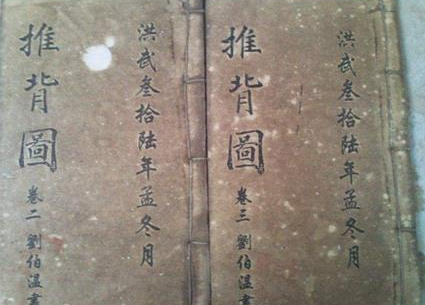 洪武叁拾陸年孟冬月
推背圖 卷三 劉伯温
洪武叁拾陸年孟冬月
推背圖 卷二 劉伯温